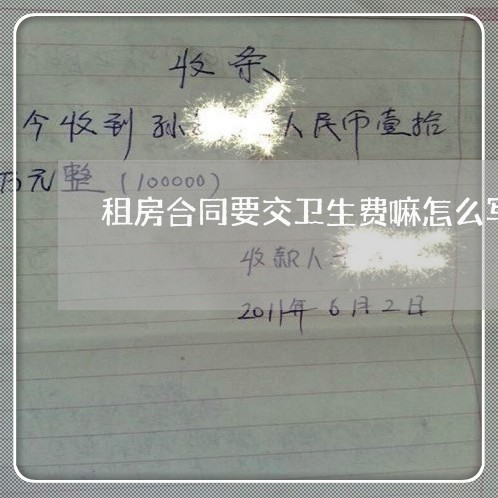 收条
今收到孙 人民币壹拾
万元整(100000)
租房合同要交卫生费嘛怎么写
收款人
2011年6月2日